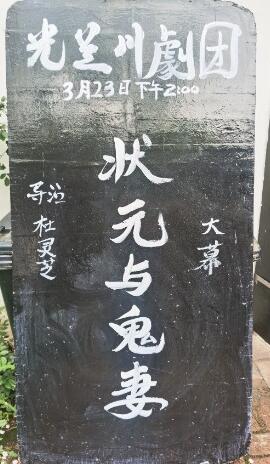 光兰川劇团
3月23日下午2:00
大幕
状元与鬼妻
导演 杜灵芝